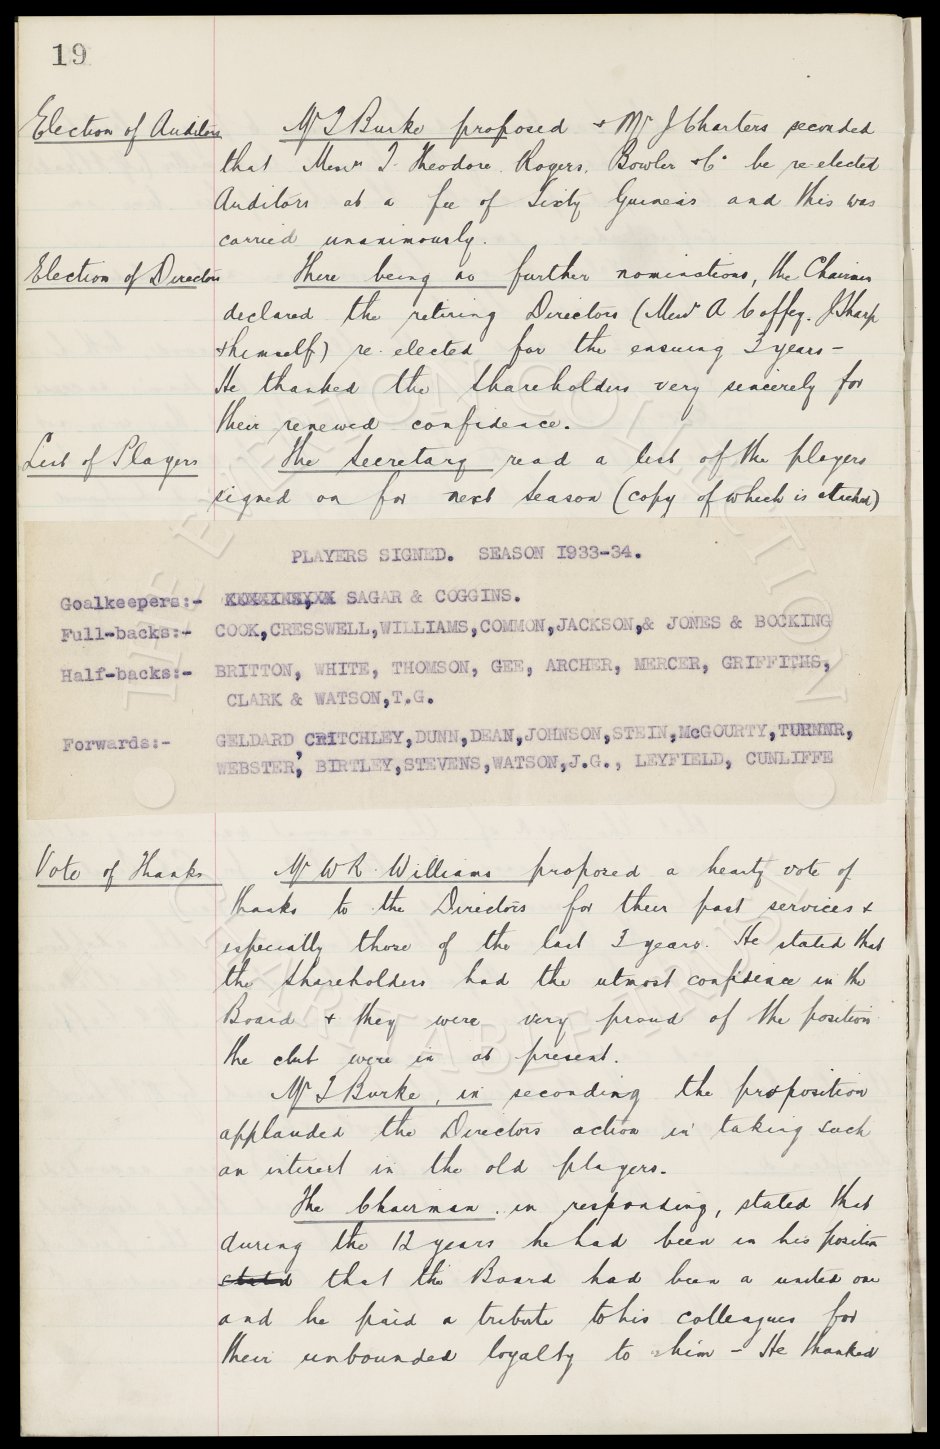 19
Election of Auditors
Mr T Burke proposed + Mr J Charters seconded
that Messrs T. Theodore Rogers, Bowler & Co be re-elected
Auditors at a fee of Sixty Guineas and this was
carried unanimously.
Election of Directors
There being no further nominations, the Chairman
declared the retiring Directors (Messrs A Coffey. J Sharp
& himself) re-elected for the ensuing 3 years -
He thanked the Shareholders very sincerely for
their renewed confidence.
List of Players
The Secretary read a list of the players
signed on for next season (copy of which is attached)
PLAYERS SIGNED. SEASON 1933-34.
Goalkeepers:- SAGAR & COGGINS.
Full-backs:- COOK,CRESSWELL,WILLIAMS,COMMON,JACKSON,& JONES & BOCKING
Half-backs:- BRITTON, WHITE, THOMSON, GEE, ARCHER, MERCER, GRIFFITHS,
CLARK & WATSON,T.G.
Forwards:- GELDARD, CRITCHLEY,DUNN,DEAN,JOHNSON,STEIN,McGOURTY,TURNNR,
WEBSTER, BIRTLEY,STEVENS,WATSON,J.G., LEYFIELD, CUNLIFFE
Vote of Thanks
Mr W R Williams proposed a hearty vote of
thanks to the Directors for their past services &
especially those of the last 3 years. He stated that
the Shareholders had the utmost confidence in the
Board & they were very proud of the position
the club were in at present.
Mr T Burke, in seconding the proposition
applauded the Directors action in taking such
an interest in the old players.
The Chairman in responding, stated that
during the 12 years he had been in his position
stated that the Board had been a united one
and he paid a tribute to his colleagues for
their unbounded loyalty to him - He thanked